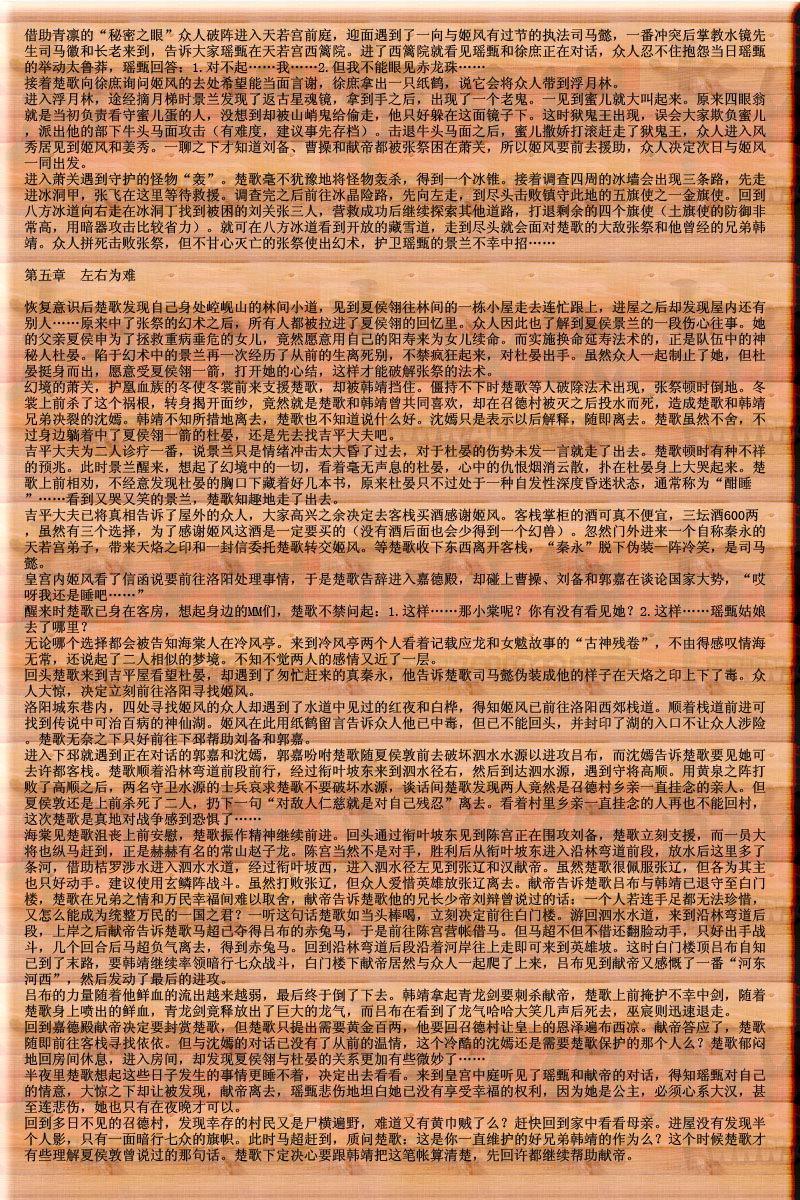 借助青凛的“秘密之眼”众人破阵进入天若宫前庭，迎面遇到了一向与姬风有过节的执法司马懿，一番冲突后掌教水镜先
生司马徽和长老来到，告诉大家瑶甄在天若宫西篱院。进了西篱院就看见瑶甄和徐庶正在对话，众人忍不住抱怨当日瑶甄
的举动太鲁莽，瑶甄回答：1.对不起……我……2.但我不能眼见赤龙珠……
接着楚歌向徐庶询问姬风的去处希望能当面言谢，徐庶拿出一只纸鹤，说它会将众人带到浮月林。
进入浮月林，途经摘月梯时景兰发现了返古星魂镜，拿到手之后，出现了一个老鬼。一见到蜜儿就大叫起来。原来四眼翁
就是当初负责看守蜜儿蛋的人，没想到却被山峭鬼给偷走，他只好躲在这面镜子下。这时狱鬼王出现，误会大家欺负蜜儿
，派出他的部下牛头马面攻击（有难度，建议事先存档）。击退牛头马面之后，蜜儿撒娇打滚赶走了狱鬼王，众人进入风
秀居见到姬风和姜秀。一聊之下才知道刘备、曹操和献帝都被张祭困在萧关，所以姬风要前去援助，众人决定次日与姬风
一同出发。
进入萧关遇到守护的怪物“轰”。楚歌毫不犹豫地将怪物轰杀，得到一个冰锥。接着调查四周的冰墙会出现三条路，先走
进冰洞甲，张飞在这里等待救援。调查完之后前往冰晶险路，先向左走，到尽头击败镇守此地的五旗使之一金旗使。回到
八方冰道向右走在冰洞丁找到被困的刘关张三人，营救成功后继续探索其他道路，打退剩余的四个旗使（土旗使的防御非
常高，用暗器攻击比较省力）。就可在八方冰道看到开放的藏雪道，走到尽头就会面对楚歌的大敌张祭和他曾经的兄弟韩
靖。众人拼死击败张祭，但不甘心灭亡的张祭使出幻术，护卫瑶甄的景兰不幸中招……
第五章　左右为难
恢复意识后楚歌发现自己身处崆岘山的林间小道，见到夏侯翎往林间的一栋小屋走去连忙跟上，进屋之后却发现屋内还有
别人……原来中了张祭的幻术之后，所有人都被拉进了夏侯翎的回忆里。众人因此也了解到夏侯景兰的一段伤心往事。她
的父亲夏侯申为了拯救重病垂危的女儿，竟然愿意用自己的阳寿来为女儿续命。而实施换命延寿法术的，正是队伍中的神
秘人杜晏。陷于幻术中的景兰再一次经历了从前的生离死别，不禁疯狂起来，对杜晏出手。虽然众人一起制止了她，但杜
晏挺身而出，愿意受夏侯翎一箭，打开她的心结，这样才能破解张祭的法术。
幻境的萧关，护凰血族的冬使冬裳前来支援楚歌，却被韩靖挡住。僵持不下时楚歌等人破除法术出现，张祭顿时倒地。冬
裳上前杀了这个祸根，转身揭开面纱，竟然就是楚歌和韩靖曾共同喜欢，却在召德村被灭之后投水而死，造成楚歌和韩靖
兄弟决裂的沈嫣。韩靖不知所措地离去，楚歌也不知道说什么好。沈嫣只是表示以后解释，随即离去。楚歌虽然不舍，不
过身边躺着中了夏侯翎一箭的杜晏，还是先去找吉平大夫吧。
吉平大夫为二人诊疗一番，说景兰只是情绪冲击太大昏了过去，对于杜晏的伤势未发一言就走了出去。楚歌顿时有种不祥
的预兆。此时景兰醒来，想起了幻境中的一切，看着毫无声息的杜晏，心中的仇恨烟消云散，扑在杜晏身上大哭起来。楚
歌上前相劝，不经意发现杜晏的胸口下藏着好几本书，原来杜晏只不过处于一种自发性深度昏迷状态，通常称为“酣睡
”……看到又哭又笑的景兰，楚歌知趣地走了出去。
吉平大夫已将真相告诉了屋外的众人，大家高兴之余决定去客栈买酒感谢姬风。客栈掌柜的酒可真不便宜，三坛酒600两
，虽然有三个选择，为了感谢姬风这酒是一定要买的（没有酒后面也会少得到一个幻兽）。忽然门外进来一个自称秦永的
天若宫弟子，带来天烙之印和一封信委托楚歌转交姬风。等楚歌收下东西离开客栈，“秦永”脱下伪装一阵冷笑，是司马
懿。
皇宫内姬风看了信函说要前往洛阳处理事情，于是楚歌告辞进入嘉德殿，却碰上曹操、刘备和郭嘉在谈论国家大势，“哎
呀我还是睡吧……”
醒来时楚歌已身在客房，想起身边的MM们，楚歌不禁问起：1.这样……那小棠呢？你有没有看见她？2.这样……瑶甄姑娘
去了哪里？
无论哪个选择都会被告知海棠人在冷风亭。来到冷风亭两个人看着记载应龙和女魃故事的“古神残卷”，不由得感叹情海
无常，还说起了二人相似的梦境。不知不觉两人的感情又近了一层。
回头楚歌来到吉平屋看望杜晏，却遇到了匆忙赶来的真秦永，他告诉楚歌司马懿伪装成他的样子在天烙之印上下了毒。众
人大惊，决定立刻前往洛阳寻找姬风。
洛阳城东巷内，四处寻找姬风的众人却遇到了水道中见过的红夜和白桦，得知姬风已前往洛阳西郊栈道。顺着栈道前进可
找到传说中可治百病的神仙湖。姬风在此用纸鹤留言告诉众人他已中毒，但已不能回头，并封印了湖的入口不让众人涉险
。楚歌无奈之下只好前往下邳帮助刘备和郭嘉。
进入下邳就遇到正在对话的郭嘉和沈嫣，郭嘉吩咐楚歌随夏侯敦前去破坏泗水水源以进攻吕布，而沈嫣告诉楚歌要见她可
去许都客栈。楚歌顺着沿林弯道前段前行，经过衔叶坡东来到泗水径右，然后到达泗水源，遇到守将高顺。用黄泉之阵打
败了高顺之后，两名守卫水源的士兵哀求楚歌不要破坏水源，谈话间楚歌发现两人竟然是召德村乡亲一直挂念的亲人。但
夏侯敦还是上前杀死了二人，扔下一句“对敌人仁慈就是对自己残忍”离去。看着村里乡亲一直挂念的人再也不能回村，
这次楚歌是真地对战争感到恐惧了……
海棠见楚歌沮丧上前安慰，楚歌振作精神继续前进。回头通过衔叶坡东见到陈宫正在围攻刘备，楚歌立刻支援，而一员大
将也纵马赶到，正是赫赫有名的常山赵子龙。陈宫当然不是对手，胜利后从衔叶坡东进入沿林弯道前段，放水后这里多了
条河，借助桔罗涉水进入泗水水道，经过衔叶坡西，进入泗水径左见到张辽和汉献帝。虽然楚歌很佩服张辽，但各为其主
也只好动手。建议使用玄鳞阵战斗。虽然打败张辽，但众人爱惜英雄放张辽离去。献帝告诉楚歌吕布与韩靖已退守至白门
楼，楚歌在兄弟之情和万民幸福间难以取舍，献帝告诉楚歌他的兄长少帝刘辩曾说过的话：一个人若连手足都无法珍惜，
又怎么能成为统整万民的一国之君？一听这句话楚歌如当头棒喝，立刻决定前往白门楼。游回泗水水道，来到沿林弯道后
段，上岸之后献帝告诉楚歌马超己夺得吕布的赤兔马，于是前往陈宫营帐借马。但马超不但不借还翻脸动手，只好出手战
斗，几个回合后马超负气离去，得到赤兔马。回到沿林弯道后段沿着河岸往上走即可来到英雄坡。这时白门楼顶吕布自知
已到了末路，要韩靖继续率领暗行七众战斗，白门楼下献帝居然与众人一起爬了上来，吕布见到献帝又感慨了一番“河东
河西”，然后发动了最后的进攻。
吕布的力量随着他鲜血的流出越来越弱，最后终于倒了下去。韩靖拿起青龙剑要刺杀献帝，楚歌上前掩护不幸中剑，随着
楚歌身上喷出的鲜血，青龙剑竟释放出了巨大的龙气，而吕布在看到了龙气哈哈大笑几声后死去，巫宸则迅速退走。
回到嘉德殿献帝决定要封赏楚歌，但楚歌只提出需要黄金百两，他要回召德村让皇上的恩泽遍布西凉。献帝答应了，楚歌
随即前往客栈寻找依依。但与沈嫣的对话已没有了从前的温情，这个冷酷的沈嫣还是需要楚歌保护的那个人么？楚歌郁闷
地回房间休息，进入房间，却发现夏侯翎与杜晏的关系更加有些微妙了……
半夜里楚歌想起这些日子发生的事情更睡不着，决定出去看看。来到皇宫中庭听见了瑶甄和献帝的对话，得知瑶甄对自己
的情意，大惊之下却让被发现，献帝离去，瑶甄悲伤地坦白她已没有享受幸福的权利，因为她是公主，必须心系大汉，甚
至连悲伤，她也只有在夜晚才可以。
回到多日不见的召德村，发现幸存的村民又是尸横遍野，难道又有黄巾贼了么？赶快回到家中看看母亲。进屋没有发现半
个人影，只有一面暗行七众的旗帜。此时马超赶到，质问楚歌：这是你一直维护的好兄弟韩靖的作为么？这个时候楚歌才
有些理解夏侯敦曾说过的那句话。楚歌下定决心要跟韩靖把这笔帐算清楚，先回许都继续帮助献帝。